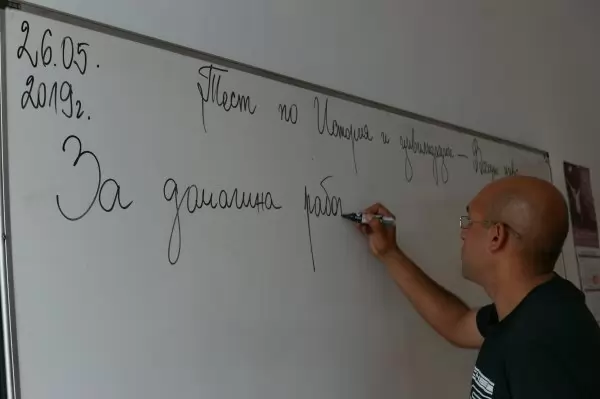 26.05.
2019г.
Тест по История и цивилизация –
За домашна рабо